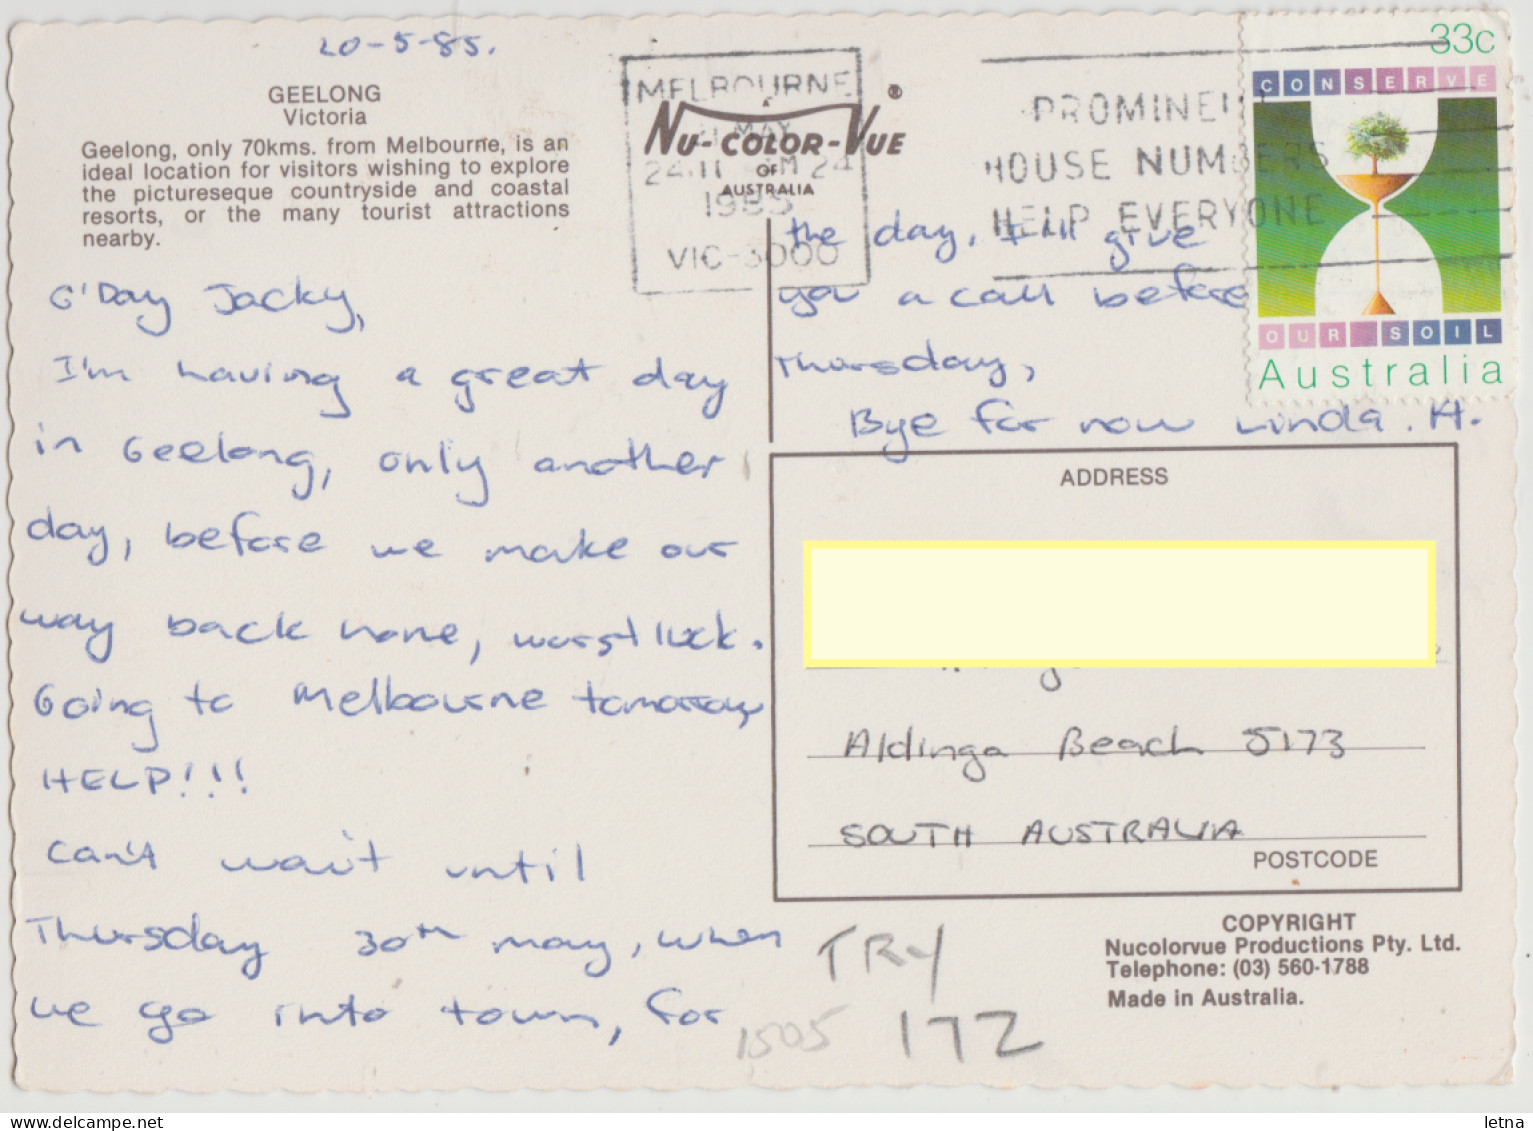 20-5-85.
GEELONG
Victoria
Geelong, only 70kms. from Melbourne, is an
ideal location for visitors wishing to explore
the picturesque countryside and coastal
resorts, or the many tourist attractions
nearby.
G'Day Jacky,
I'm having a great day
in Geelong, only another
day, before we make our
way back home, worst luck.
Going to Melbourne tomorrow
HELP!!!
Can't wait until
Thursday 30th may, when
we go into town, for
MELBOURNE
MAY
24
1985
VIC-3000
NU-COLOR-VUE ®
OF
AUSTRALIA
PROMINENT
HOUSE NUMBERS
HELP EVERYONE
33c
CONSERVE
OUR SOIL
Australia
the day, I'll give
you a call before
Thursday,
Bye for now Linda. H.
ADDRESS
Aldinga Beach 5173
SOUTH AUSTRALIA
POSTCODE
TRY
1505 172
COPYRIGHT
Nucolorvue Productions Pty. Ltd.
Telephone: (03) 560-1788
Made in Australia.
https://www.delcampe.net
letna